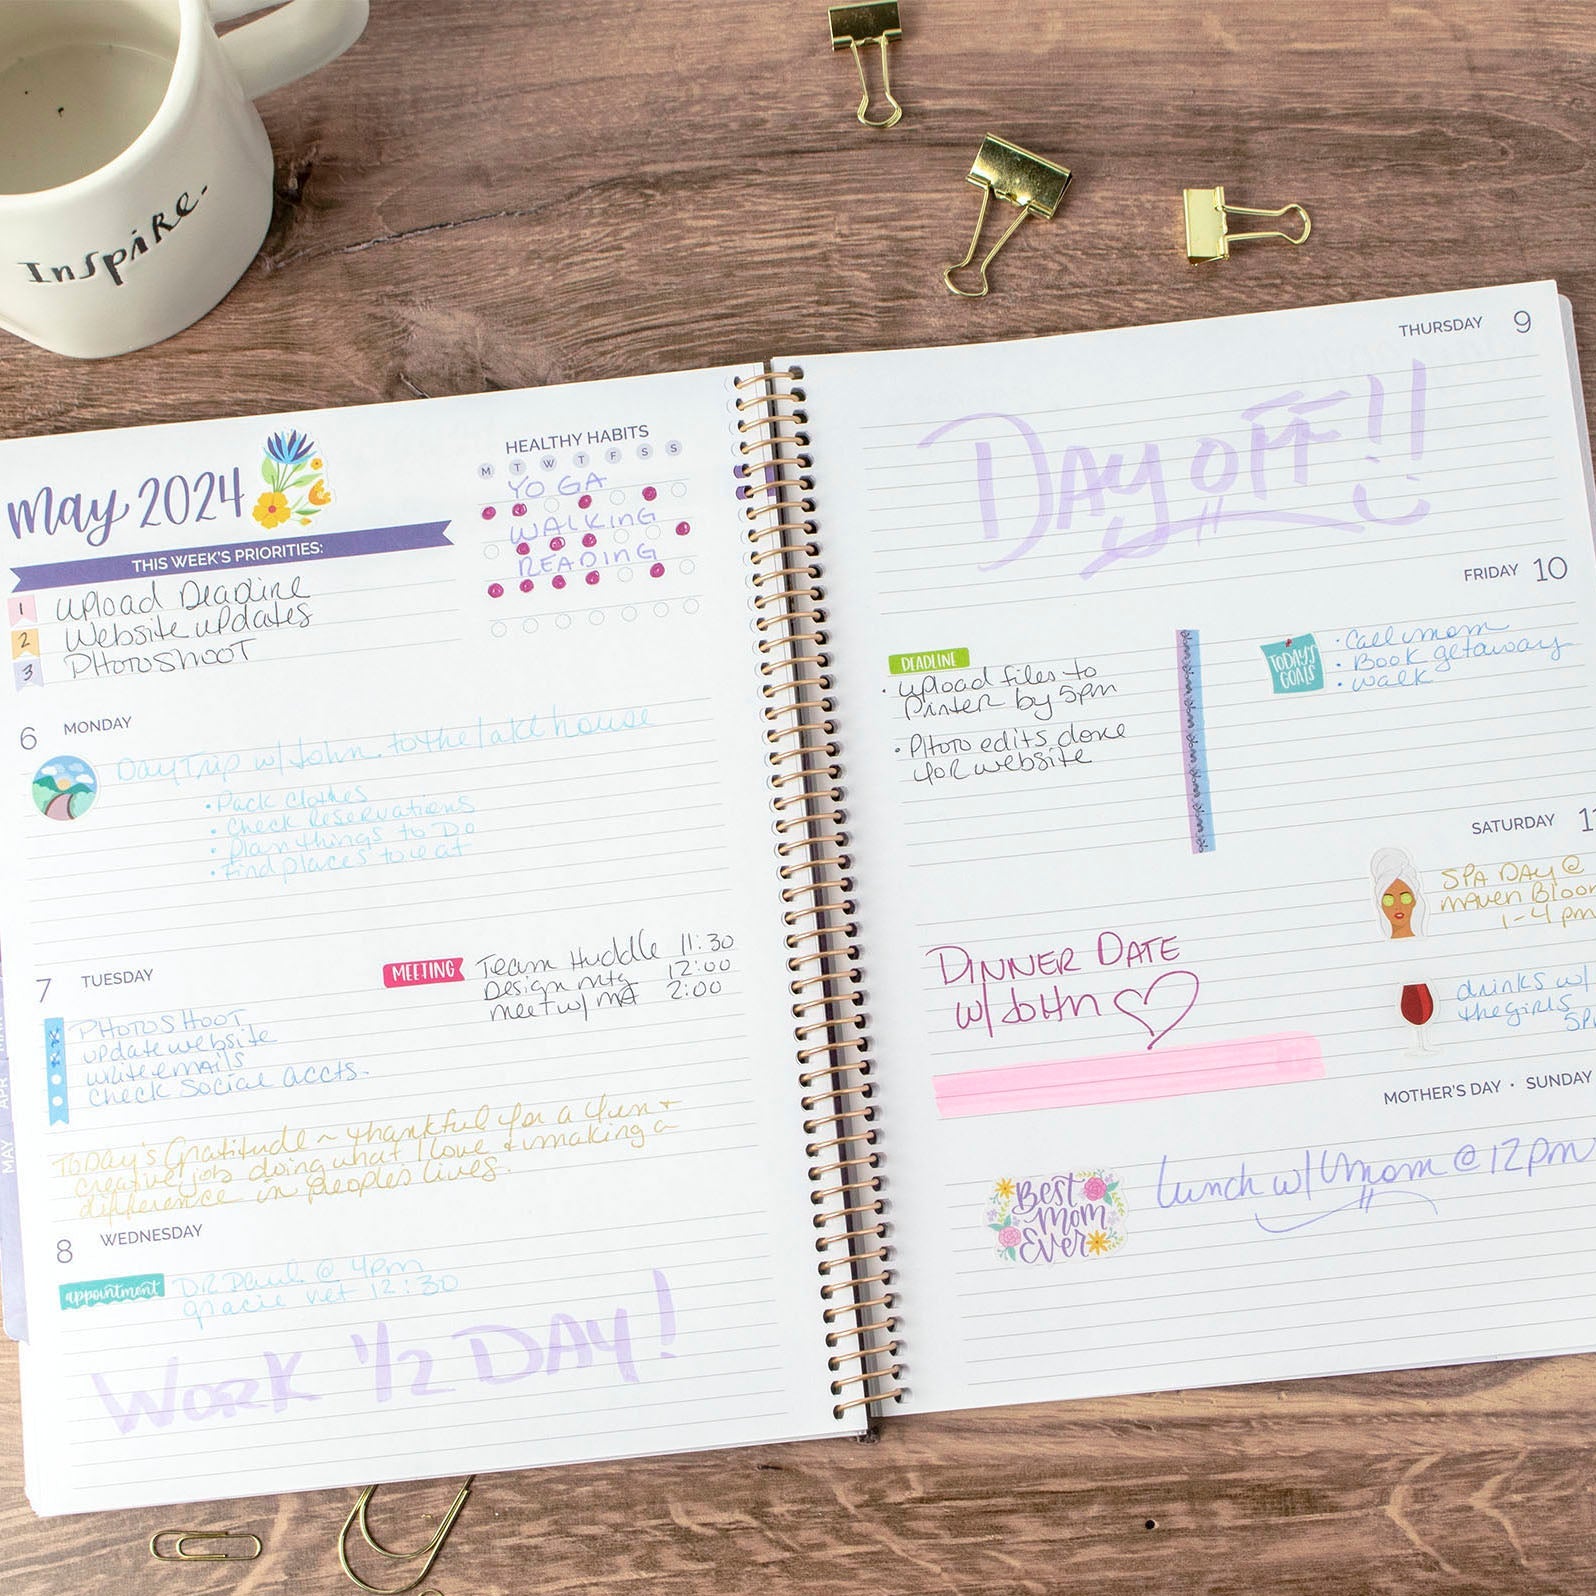 Inspire.
May 2024
THIS WEEK'S PRIORITIES:
1 Upload Deadline
2 Website updates
3 PHOTOSHOOT
HEALTHY HABITS
M T W T F S S
YOGA
WALKING
READING
6 MONDAY
Day Trip w/ John to the lake house
• Pack clothes
• Check Reservations
• Plan things to Do
• Find places to eat
7 TUESDAY
MEETING
Team Huddle 11:30
Design mtg 12:00
meet w/ 2:00
PHOTOSHOOT
update website
write emails
check social accts.
TODAY's Gratitude ~ thankful for a fun +
creative job doing what I love + making a
difference in people's lives.
8 WEDNESDAY
appointment
DR Paul @ 4pm
gracie vet 12:30
WORK 1/2 DAY!
MAY APR
THURSDAY 9
DAY OFF!!
FRIDAY 10
DEADLINE
• upload files to
Printer by 5pm
• PHOTO edits done
for website
TODAY'S
GOALS
• Call mom
• Book getaway
• walk
DINNER DATE
w/ JOHN
SATURDAY 1
SPA DAY @
Maven Bloom
1-4 pm
drinks w/
the girls
5p
MOTHER'S DAY • SUNDAY
Best
Mom
Ever
Lunch w/ Mom @ 12pm